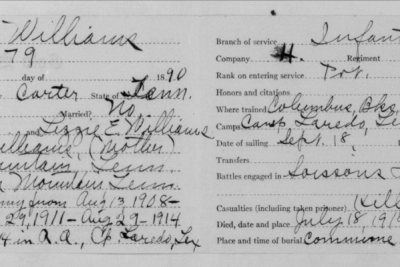 Williams
79
day of 1890
Carter, State of Tenn.
Married? No
and Lizzie E. Williams
Williams, (Mother)
Mountain Tenn.
Mountain Tenn.
from Aug 13, 1908-
29, 1911 - Aug 29-1914
4 in Q.A., Cp. Laredo, Tex
Branch of service Infant
Company H. Regiment
Rank on entering service Pvt.
Honors and citations
Where trained Columbus, Bks.
Camps Camp Laredo, Te
Date of sailing Sept. 18,
Transfers
Battles engaged in Soissons
Casualties (including taken prisoner) Kill
Died, date and place July 18, 191
Place and time of burial Commune